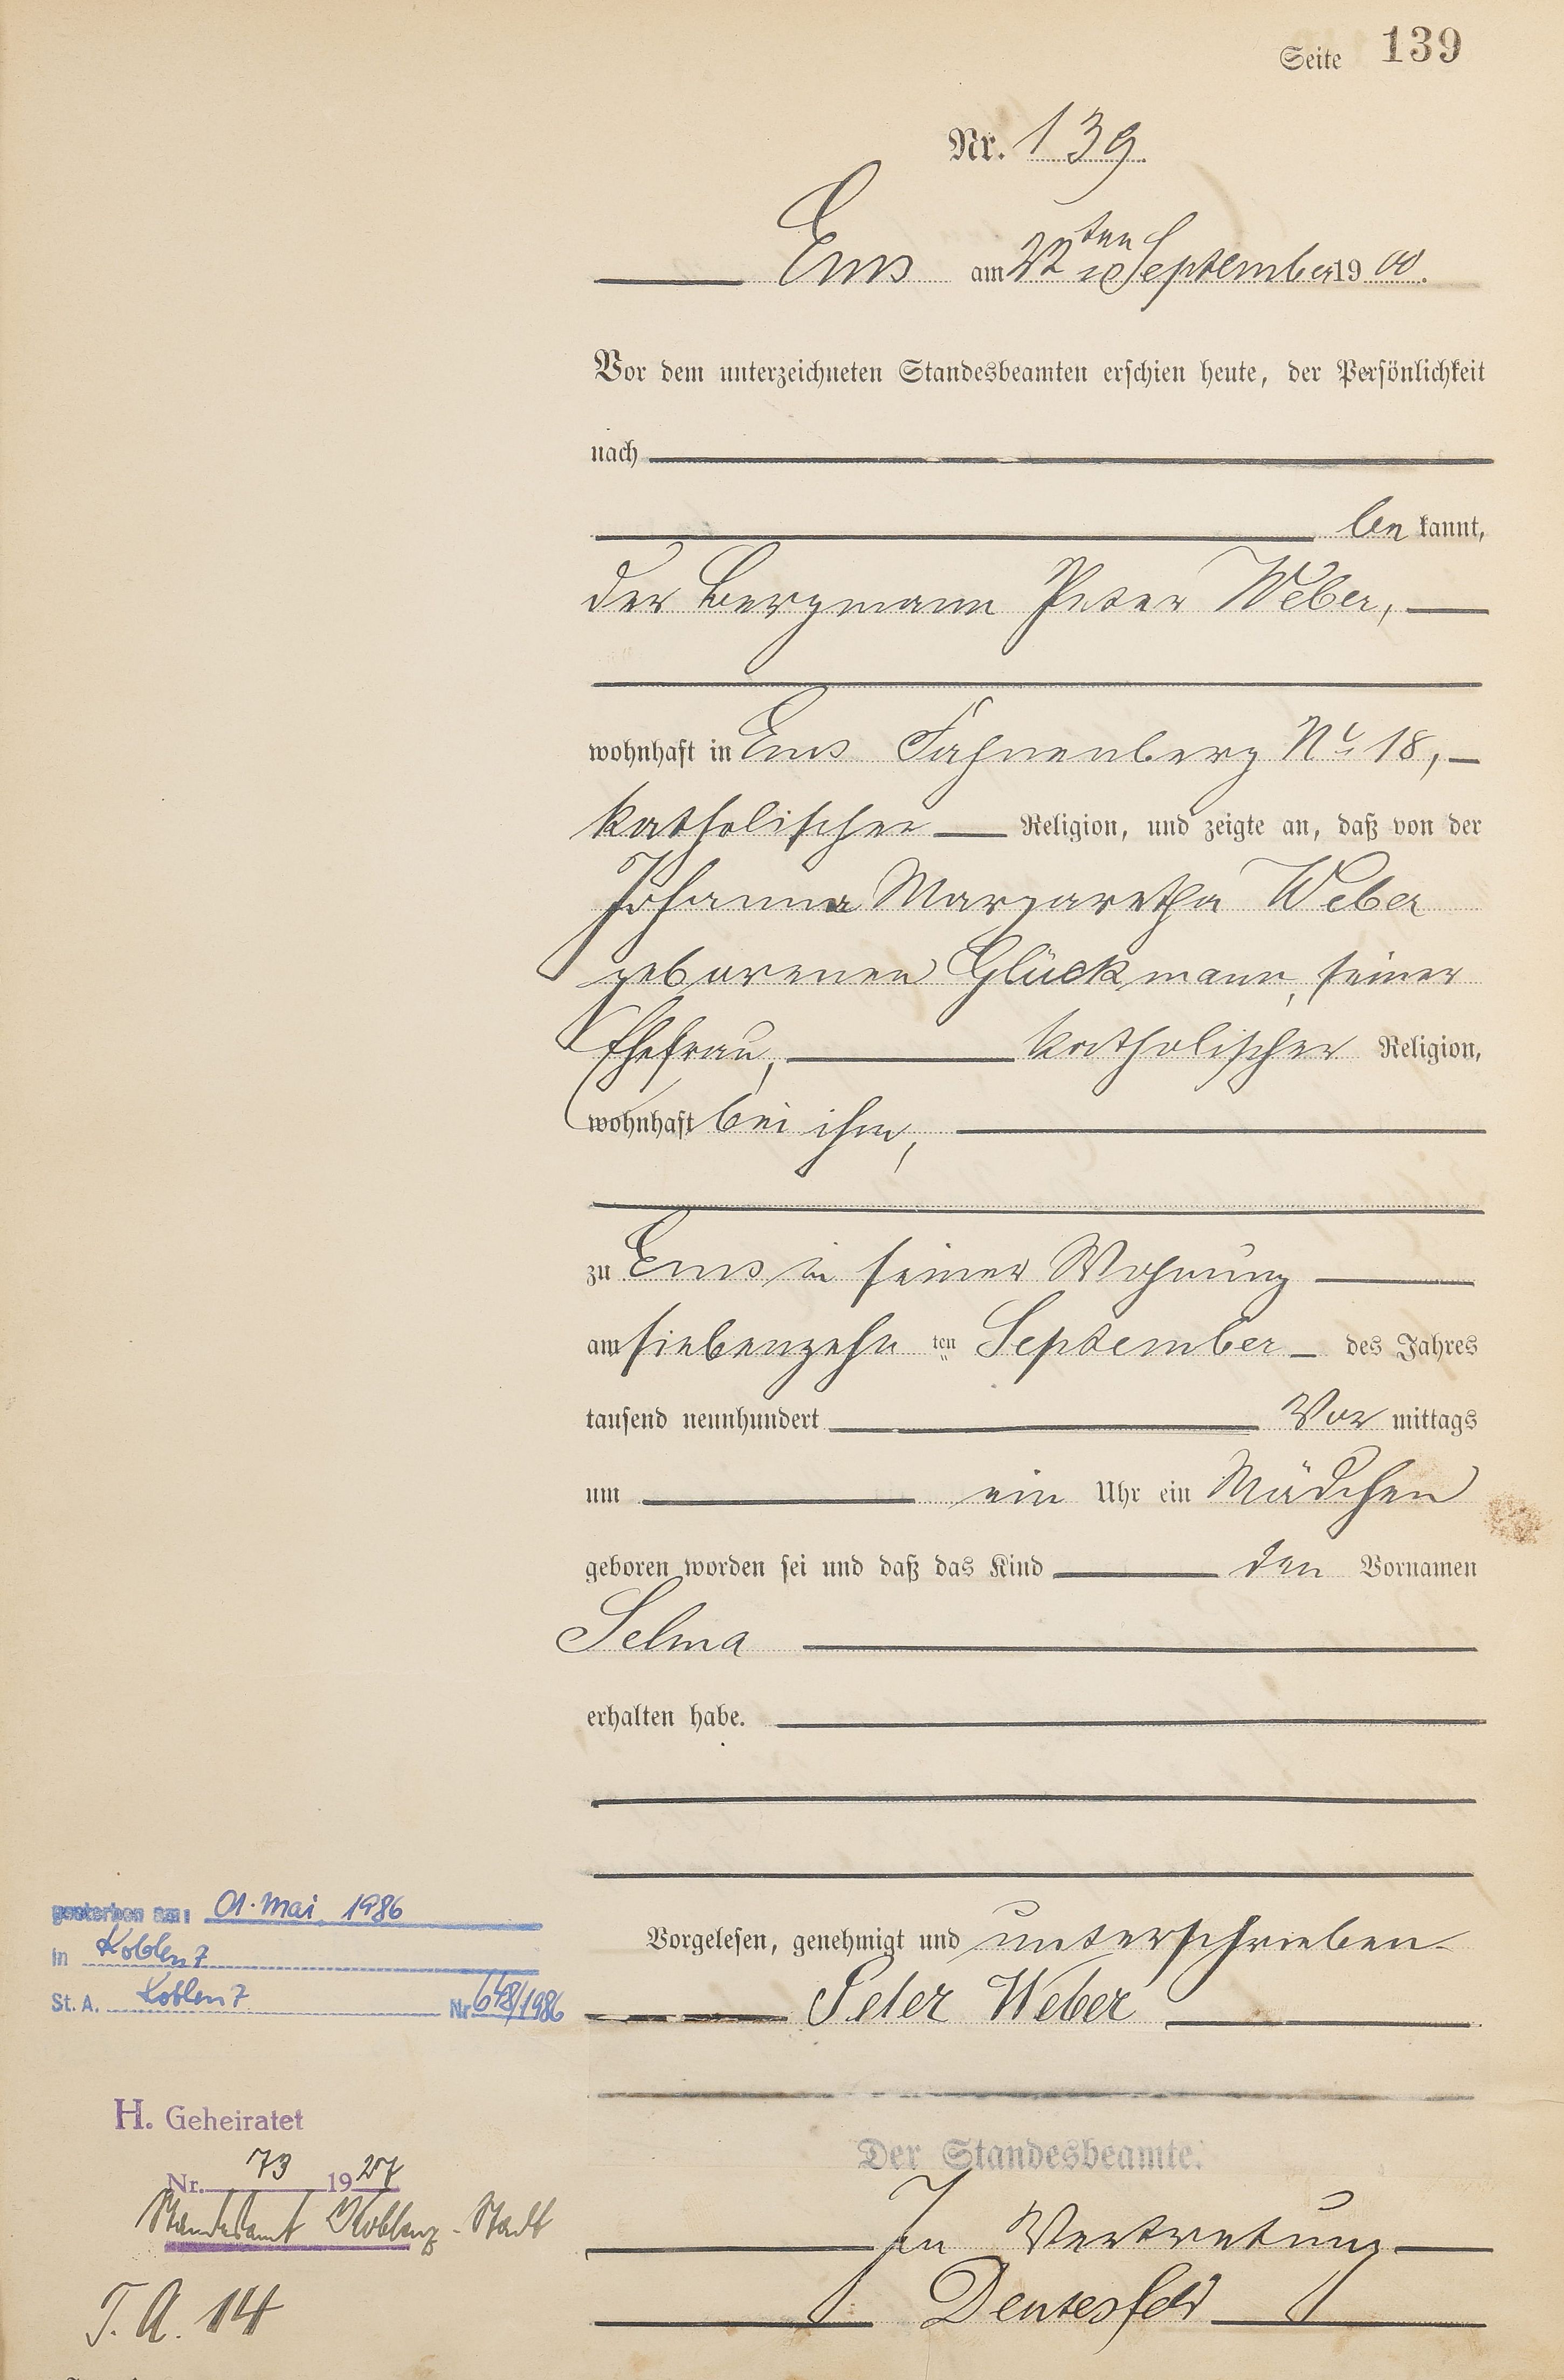 Seite 139
Nr. 139.
Ems am 22ten September 1900.
Vor dem unterzeichneten Standesbeamten erschien heute, der Persönlichkeit
nach
be kannt,
der Bergmann Peter Weber,
wohnhaft in Ems Fahnenberg No 18,
katholischer Religion, und zeigte an, daß von der
Johanna Margaretha Weber
geborenen Glückmann, seiner
Ehefrau, katholischer Religion,
wohnhaft bei ihm,
zu Ems in seiner Wohnung
am siebenzehn ten September des Jahres
tausend neunhundert Vor mittags
um ein Uhr ein Mädchen
geboren worden sei und daß das Kind den Vornamen
Selma
erhalten habe.
Vorgelesen, genehmigt und unterschrieben
Peter Weber
Der Standesbeamte.
In Vertretung
gestorben am: 01. Mai 1986
in Koblenz
St. A. Koblenz Nr. 648/1986
H. Geheiratet
Nr. 73 1927
Standesamt Koblenz-Stadt
T. A. 14